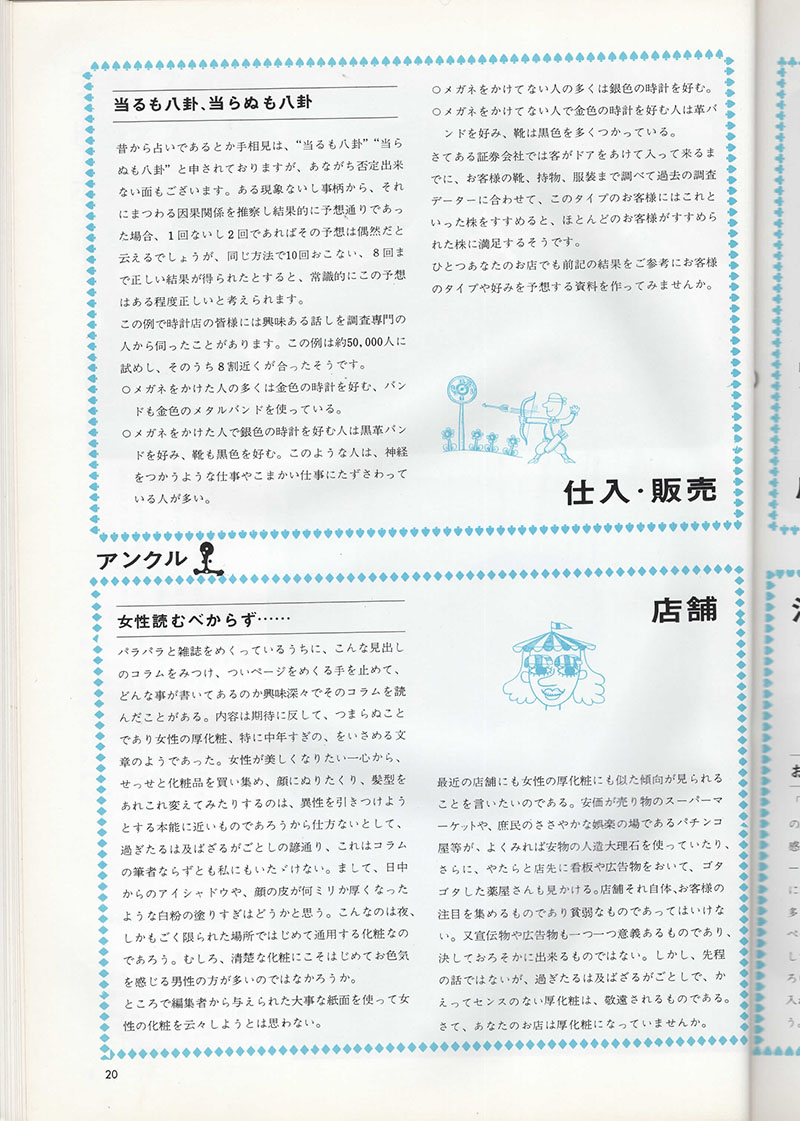 当るも八卦、当らぬも八卦
昔から占いであるとか手相見は、“当るも八卦”“当ら
ぬも八卦”と申されておりますが、あながち否定出来
ない面もございます。ある現象ないし事柄から、それ
にまつわる因果関係を推察し結果的に予想通りであっ
た場合、1回ないし2回であればその予想は偶然だと
云えるでしょうが、同じ方法で10回おこない、8回ま
で正しい結果が得られたとすると、常識的にこの予想
はある程度正しいと考えられます。
この例で時計店の皆様には興味ある話しを調査専門の
人から伺ったことがあります。この例は約50,000人に
試めし、そのうち8割近くが合ったそうです。
○メガネをかけた人の多くは金色の時計を好む、バン
ドも金色のメタルバンドを使っている。
○メガネをかけた人で銀色の時計を好む人は黒革バン
ドを好み、靴も黒色を好む。このような人は、神経
をつかうような仕事やこまかい仕事にたずさわって
いる人が多い。
○メガネをかけてない人の多くは銀色の時計を好む。
○メガネをかけてない人で金色の時計を好む人は革バ
ンドを好み、靴は黒色を多くつかっている。
さてある証券会社では客がドアをあけて入って来るま
でに、お客様の靴、持物、服装まで調べて過去の調査
データーに合わせて、このタイプのお客様にはこれと
いった株をすすめると、ほとんどのお客様がすすめら
れた株に満足するそうです。
ひとつあなたのお店でも前記の結果をご参考にお客様
のタイプや好みを予想する資料を作ってみませんか。
仕入・販売
アンクル
女性読むべからず……
パラパラと雑誌をめくっているうちに、こんな見出し
のコラムをみつけ、ついページをめくる手を止めて、
どんな事が書いてあるのか興味深々でそのコラムを読
んだことがある。内容は期待に反して、つまらぬこと
であり女性の厚化粧、特に中年すぎの、をいさめる文
章のようであった。女性が美しくなりたい一心から、
せっせと化粧品を買い集め、顔にぬりたくり、髪型を
あれこれ変えてみたりするのは、異性を引きつけよう
とする本能に近いものであろうから仕方ないとして、
過ぎたるは及ばざるがごとしの諺通り、これはコラム
の筆者ならずとも私にもいたゞけない。まして、日中
からのアイシャドウや、顔の皮が何ミリか厚くなった
ような白粉の塗りすぎはどうかと思う。こんなのは夜、
しかもごく限られた場所ではじめて通用する化粧なの
であろう。むしろ、清楚な化粧にこそはじめてお色気
を感じる男性の方が多いのではなかろうか。
ところで編集者から与えられた大事な紙面を使って女
性の化粧を云々しようとは思わない。
店舗
最近の店舗にも女性の厚化粧にも似た傾向が見られる
ことを言いたいのである。安価が売り物のスーパーマ
ーケットや、庶民のささやかな娯楽の場であるパチンコ
屋等が、よくみれば安物の人造大理石を使っていたり、
さらに、やたらと店先に看板や広告物をおいて、ゴタ
ゴタした薬屋さんも見かける。店舗それ自体、お客様の
注目を集めるものであり貧弱なものであってはいけな
い。又宣伝物や広告物も一つ一つ意義あるものであり、
決しておろそかに出来るものではない。しかし、先程
の話ではないが、過ぎたるは及ばざるがごとしで、か
えってセンスのない厚化粧は、敬遠されるものである。
さて、あなたのお店は厚化粧になっていませんか。
20